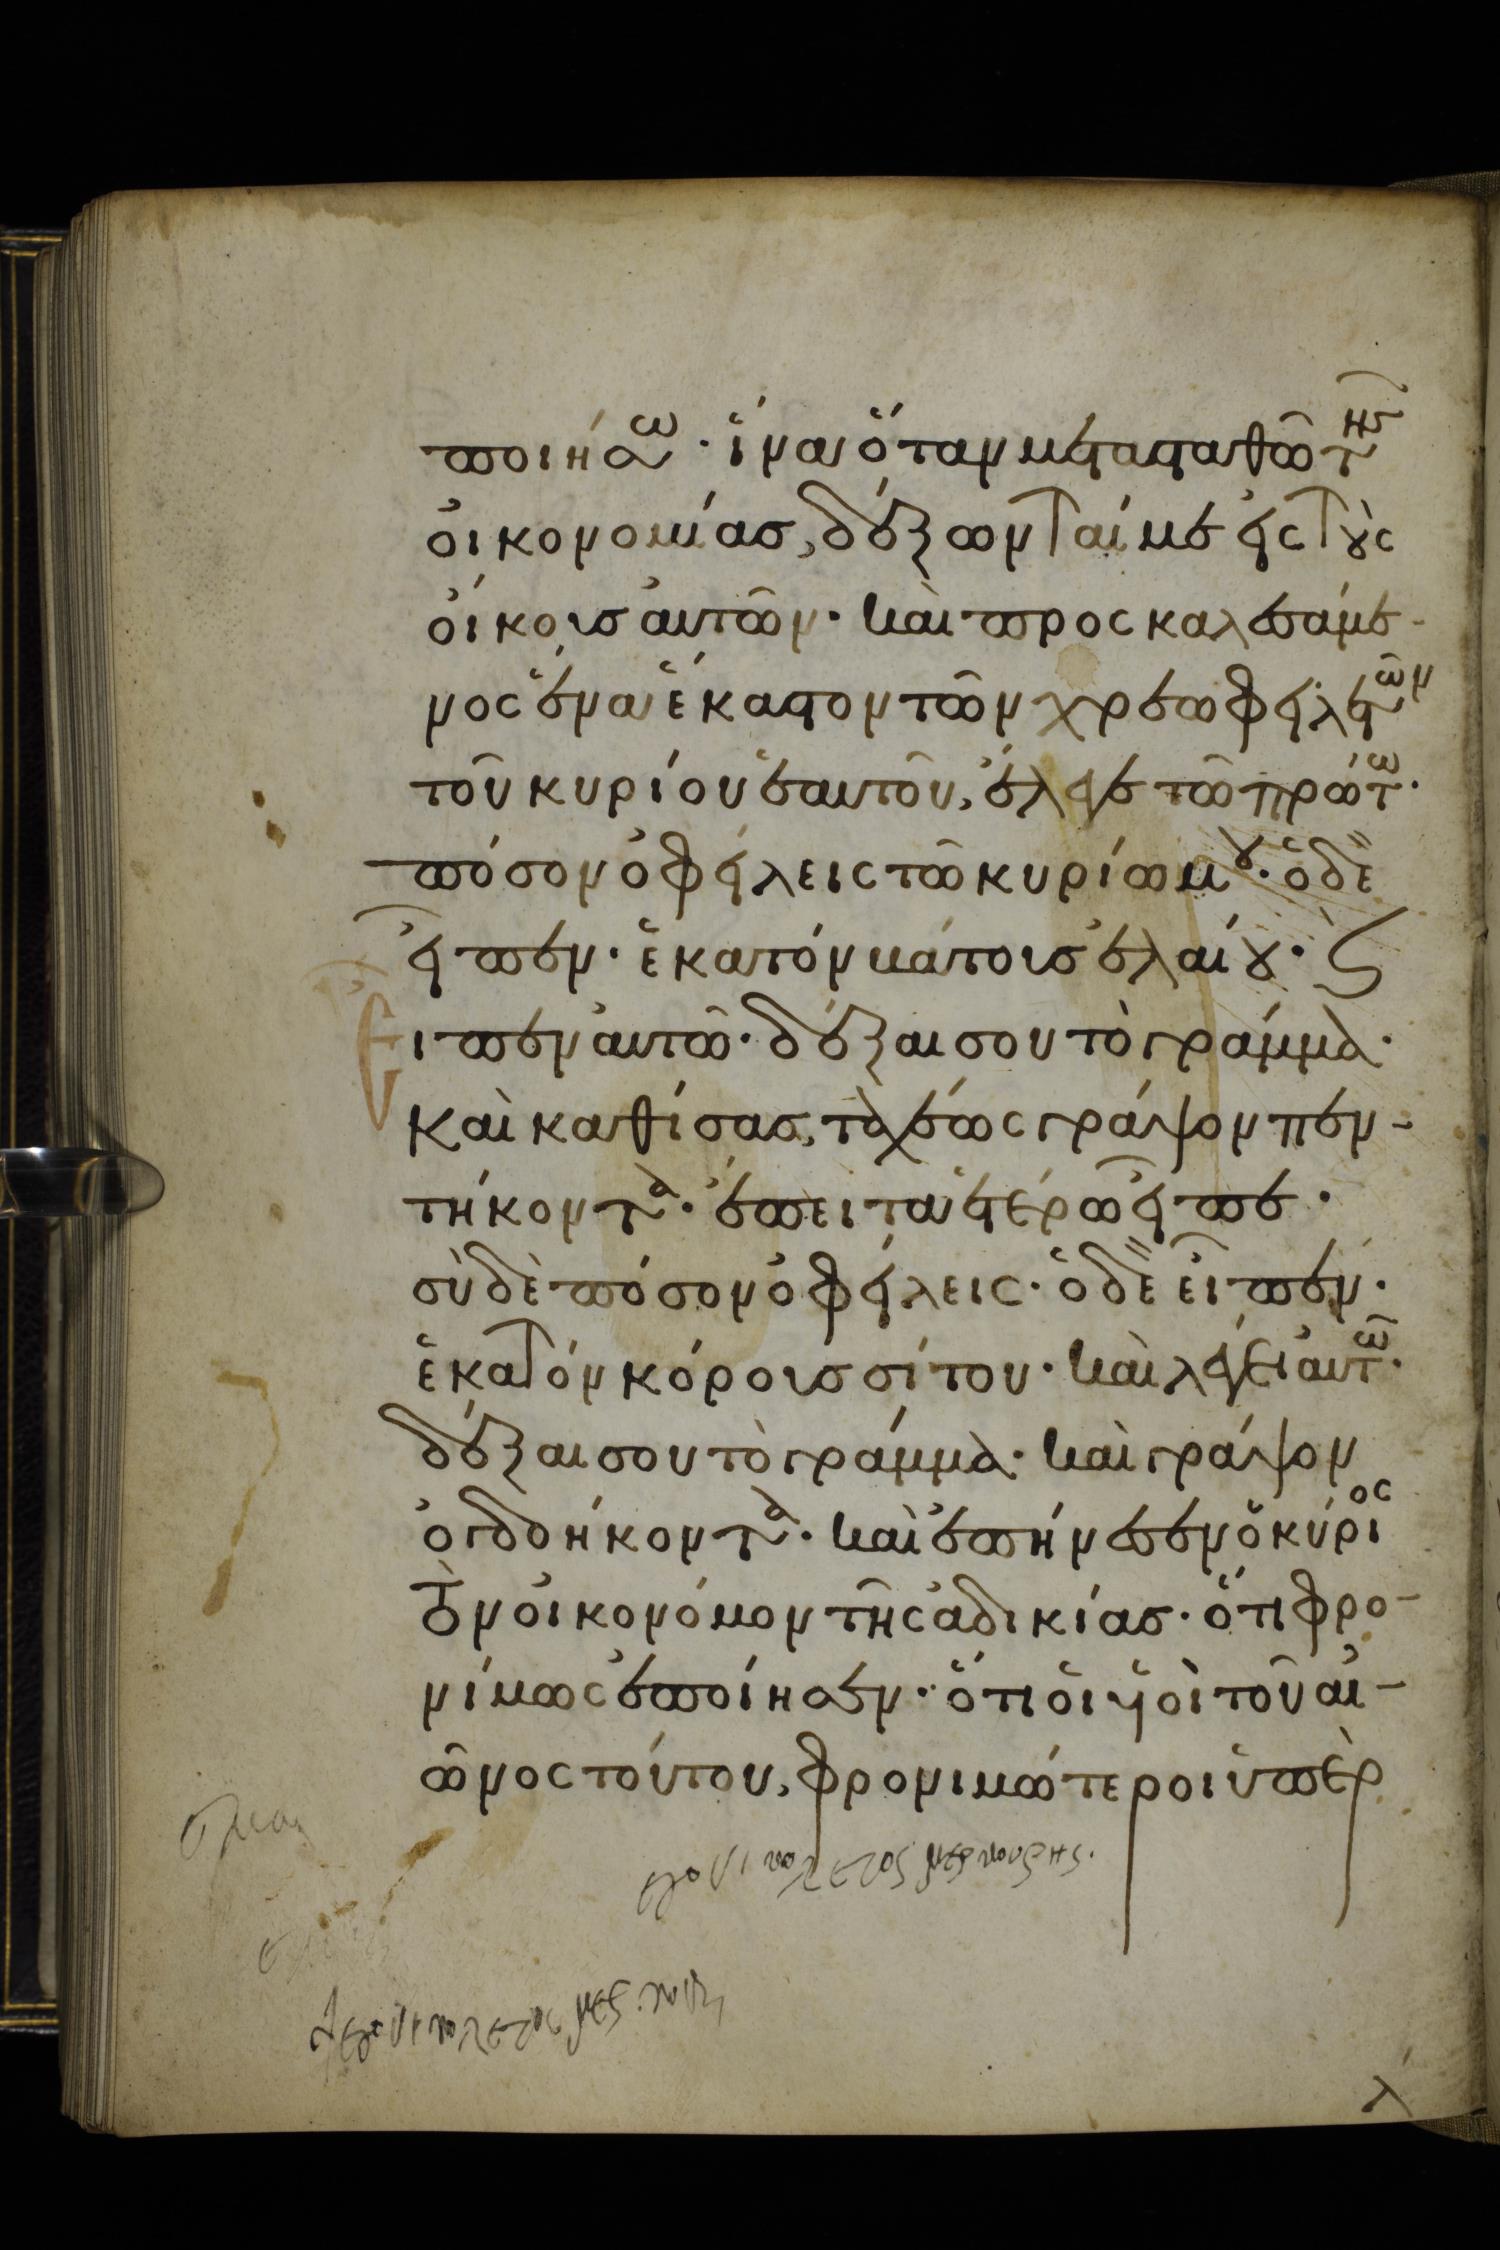 ποιήσω· ἵνα ὅταν μετασταθῶ τῆς
οἰκονομίας, δέξωνταί με εἰς τοὺς
οἴκους αὐτῶν· καὶ προσκαλεσάμε-
νος ἕνα ἕκαστον τῶν χρεωφειλετῶν
τοῦ κυρίου ἑαυτοῦ, ἔλεγε τῶ πρώτω·
πόσον ὀφείλεις τῶ κυρίω μου· ὁ δὲ
εἶπεν· ἑκατὸν βάτους ἐλαίου· καὶ
εἶπεν αὐτῶ· δέξαι σου τὸ γράμμα·
καὶ καθίσας, ταχέως γράψον πεν-
τήκοντα· ἔπειτα ἑτέρω εἶπε·
σὺ δὲ πόσον ὀφείλεις· ὁ δὲ εἶπεν·
ἑκατὸν κόρους σίτου· καὶ λέγει αὐτῶ·
δέξαι σου τὸ γράμμα· καὶ γράψον
ὀγδοήκοντα· καὶ ἐπήνεσεν ὁ κύριος
τὸν οἰκονόμον τῆς ἀδικίας· ὅτι φρο-
νίμως ἐποίησεν· ὅτι οἱ υἱοὶ τοῦ αἰ-
ῶνος τούτου, φρονιμώτεροι ὑπὲρ
λ